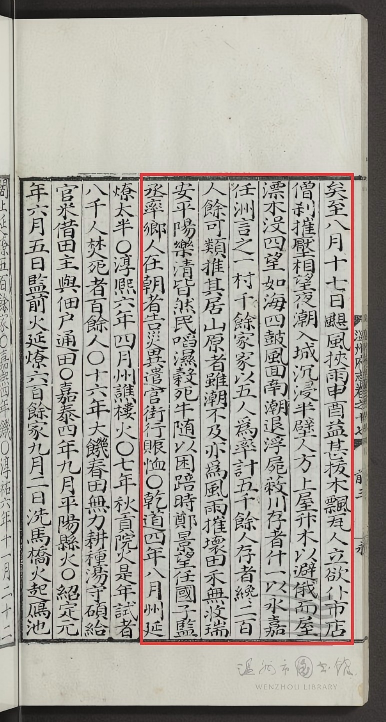 温州府志卷之十七
矣至八月十七日颶風挾雨申酉益甚拔木飄瓦人立欲仆市店
僧刹摧壓相望夜潮入城沉浸半壁人方上屋升木以避俄而屋
漂木没四望如海四鼓風囬南潮退浮屍蔽川存者什一以永嘉
任洲言之一村千餘家家以五人為率計五千餘人存者纔二百
人餘可類推其居山原者雖潮不及亦為風雨摧壞田禾無收瑞
安平陽樂清皆然民啗濕穀死牛随以困踣時鄭景望任國子監
丞率鄉人在朝者言災異遣官行賑恤〇乾道四年八月州延
燎太半〇淳熙六年四月州譙樓火〇七年秋貢院火是年試者
八千人焚死者百餘人〇十六年大饑春田無力耕種守碩給
官米借田主與佃户通田〇嘉泰四年九月平陽縣火〇紹定元
年六月五日監前火延燎六百餘家九月二日洗馬橋火起鴈池
延燎五百餘家〇嘉熙四年饑〇淳祐六年十一月二十二
温州市圖書館
WENZHOU LIBRARY